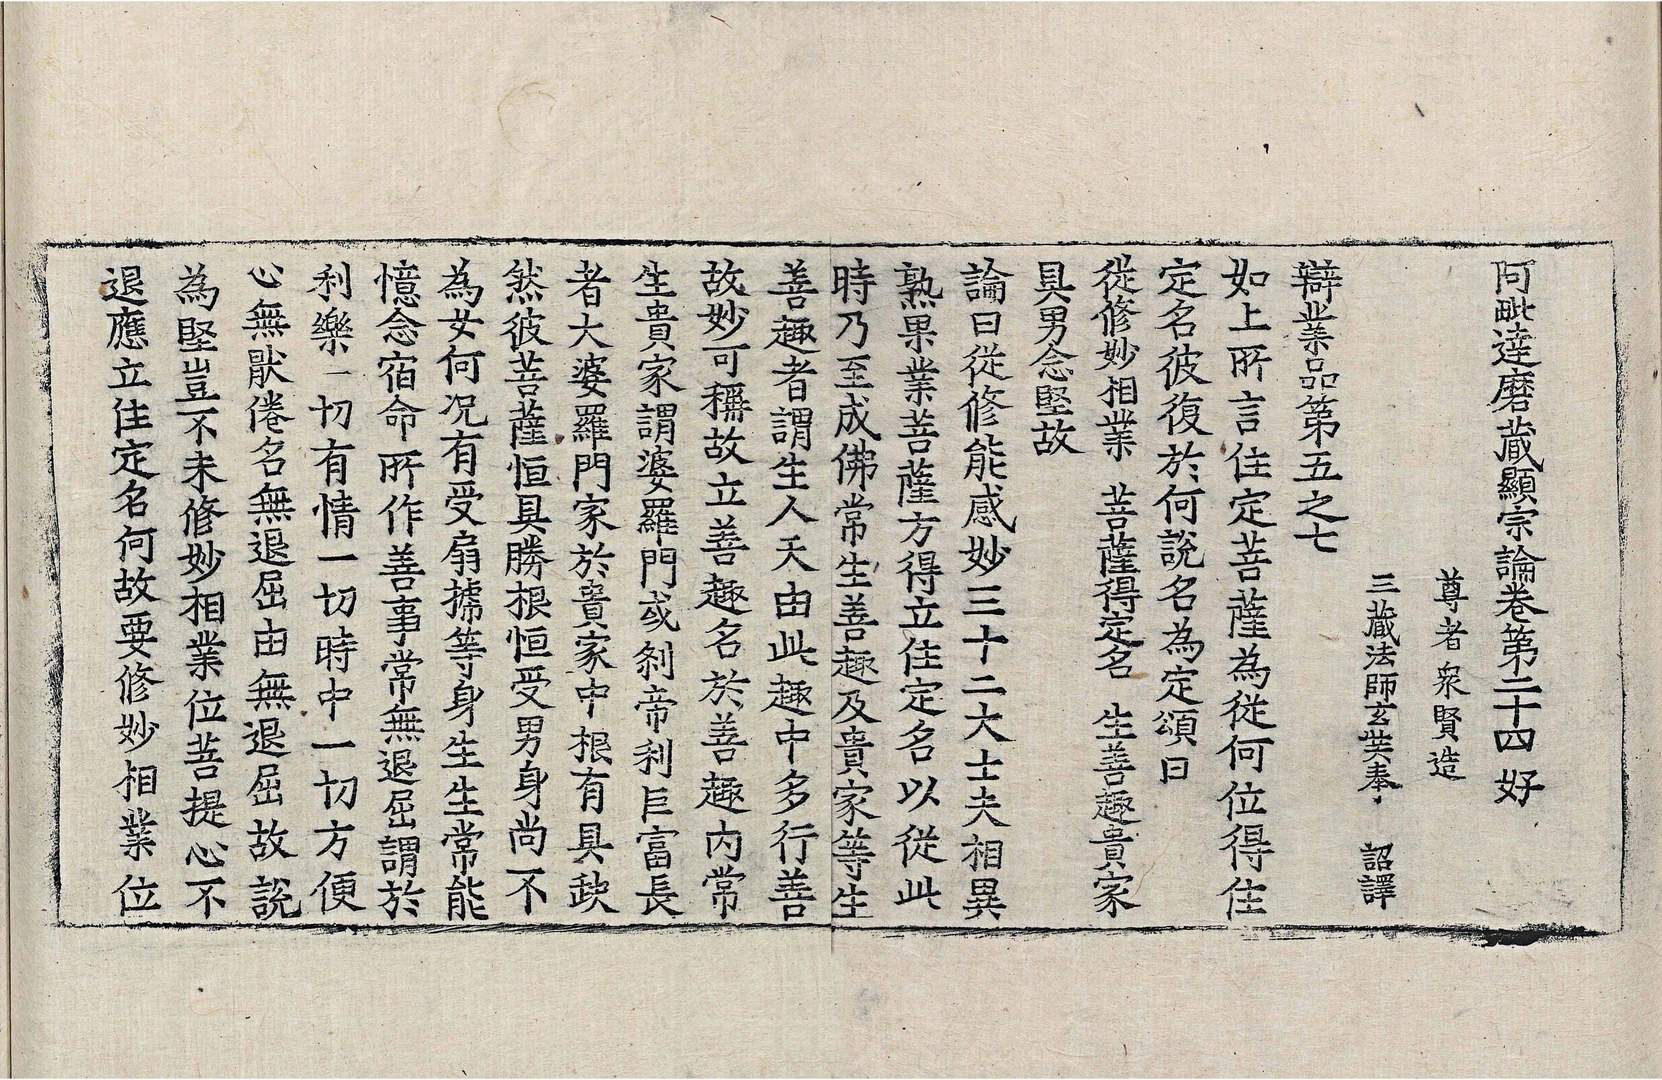 阿毗達磨藏顯宗論卷第二十四 好
尊者衆賢造
三藏法師玄奘奉 詔譯
辯業品第五之七
如上所言住定菩薩為從何位得住
定名彼復於何說名為定頌曰
從修妙相業 菩薩得定名 生善趣貴家
具男念堅故
論曰從修能感妙三十二大士夫相異
熟果業菩薩方得立住定名以從此
時乃至成佛常生善趣及貴家等生
善趣者謂生人天由此趣中多行善
故妙可稱故立善趣名於善趣內常
生貴家謂婆羅門或剎帝利巨富長
者大婆羅門家於貴家中根有具缺
然彼菩薩恒具勝根恒受男身尚不
為女何況有受扇搋等身生生常能
憶念宿命所作善事常無退屈謂於
利樂一切有情一切時中一切方便
心無猒倦名無退屈由無退屈故說
為堅豈不未修妙相業位菩提心不
退應立住定名何故要修妙相業位